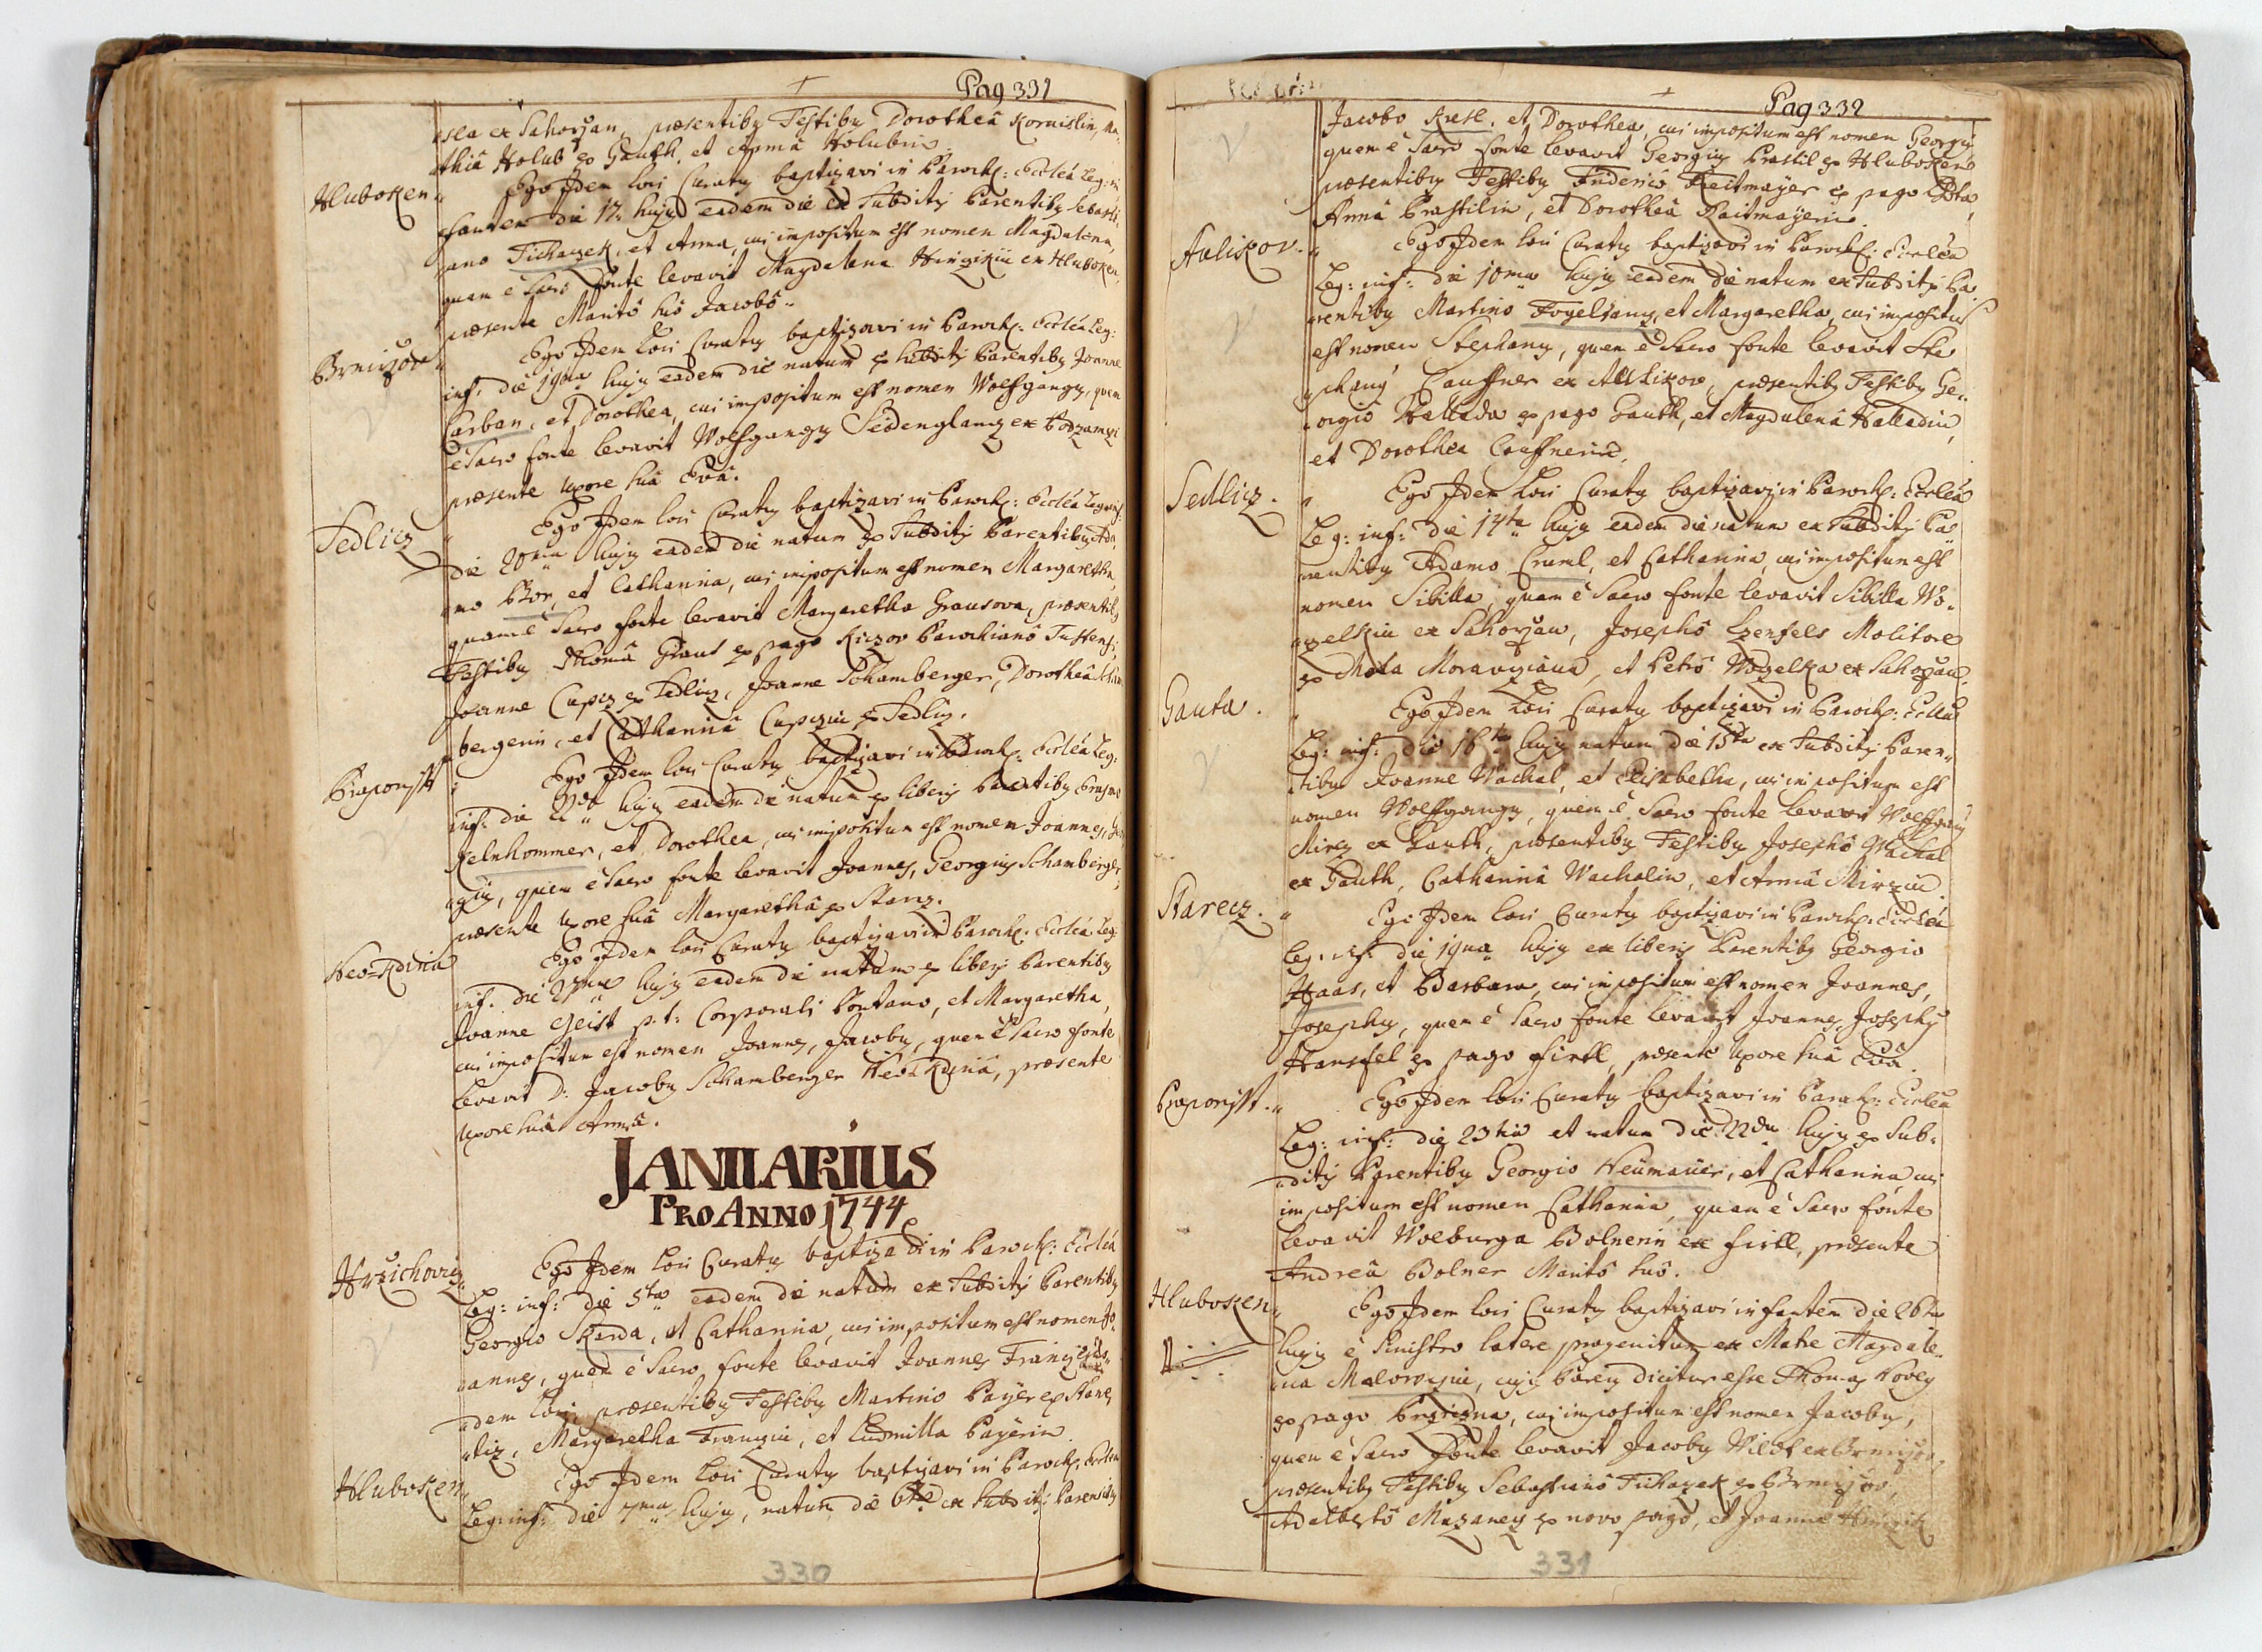 Pag 331
ex Sahorzan, præsentiby Testiby Dorotheâ Kornislin,
thiâ Holub ex Gauth, et Annâ Holubin.
Hluboken
Ego Idem loci Curaty baptizavi in Paroch: Ecclèa Leg: in
fantem die 17. hujy eadem die ex Subditis Parentiby Sebasti
ano Tichaczek, et Anna, cui impositum est nomen Magdalena,
quam è Sacro fonte levavit Magdalena ex Hluboken,
præsente Maritô suô Jacobô.
Ego Idem Loci Curaty baptizavi in Paroch: Ecclèa Leg:
inf: die 19na hujy eadem die natum ex subditis Parentiby Joanne
Carban, et Dorothea, cui impositum est nomen Wolfgangy, quem
è Sacro fonte levavit Wolfgangy Seidenglanz ex
præsente Uxore suâ Evâ.
Sedlicz
Ego Idem loci Curaty baptizavi in Paroch: Ecclèa Leg: inf:
die 20ma hujy eadem die natum ex Subditis Parentiby Ada
mo Bor, et Catharina, cui impositum est nomen Margaretha,
quam è Sacro fonte levavit Margaretha Grausova, præsentiby
Testiby Thomâ Graus ex pago Kiczov Parochianô
Joanne Cupicz ex Sedlicz, Joanne Schamberger, Dorotheâ Scham
bergerin, et Catharinâ Cupiczin ex Sedlicz.
Ego Idem loci Curaty baptizavi in Paroch: Ecclèa Leg:
inf: die hujy eadem die natum ex liberis Parentiby Erasmo
et Dorothea, cui impositum est nomen Joannes, Geor
giy, quem è Sacro fonte levavit Joannes, Georgiy Schamberger,
præsente Uxore suâ Margarethâ ex Stanz.
Neo-Kdinia
Ego Idem loci Curaty baptizavi in Paroch: Ecclèa Leg:
inf: die 27ma hujy eadem die natum ex liberis Parentiby
Joanne Geist p:t: Corporali et Margaretha,
cui impositum est nomen Joannes, Jacoby, quem è Sacro fonte
levavit D: Jacoby Schamberger Neo-Kdiniâ, præsente
Uxore suâ Annâ.
JANUARIUS
PRO ANNO 1744
Ego Idem loci Curaty baptizavi in Paroch: Ecclèa
Leg: inf: die 5ta eadem die natum ex Subditis Parentiby
Georgio Skarda, et Catharina, cui impositum est nomen Jo
annes, quem è Sacro fonte levavit Joannes
dem loci præsentiby Testiby Martino Payer ex Stane
tiz, Margaretha et Ludmilla Payerin.
Hluboken
Ego Idem Loci Curaty baptizavi in Paroch: Ecclèa
Leg: inf: die 7ma hujy, natum die 6ta ex Subditis Parentiby
330
Pag 332
Jacobo Kresl. et Dorothea, cui impositum est nomen Georgiy
quem è Sacro fonte levavit Georgiy Prastil ex Hluboken
præsentiby Testiby Friderico Reitmayer ex pago
Annâ Prastilin, et Dorotheâ Raitmayerin.
Aulikov.
Ego Idem loci Curaty baptizavi in Paroch: Ecclèa
Leg: inf: die 10ma hujy eadem die natum ex Subditis Pa
rentiby Martino Fogelsang, et Margaretha, cui impositum
est nomen Stephany, quem è Sacro fonte levavit Ste
phany Cauffner ex Aulikow, præsentiby Testiby Ge
orgio Hallada ex pago Gauth, et Magdalenâ Halladin,
et Dorothea Cauffnerin.
Sedlicz.
Ego Idem Loci Curaty baptizavi in Paroch: Ecclèa
Leg: inf: die 14ta hujy eadem die natum ex Subditis Pa
rentiby Adamo Craml, et Catharina, cui impositum est
nomen Sibilla, quam è Sacro fonte levavit Sibilla Wo
zelkin ex Sahorzan, Josephô Molitore
ex Mola Moravcziana, et Petrô Wozelka ex Sahorzan.
Gauta.
Ego Idem Loci Curaty baptizavi in Paroch: Ecclèa
Leg: inf: die 16ta hujy natum die 15ta ex Subditis Paren
tiby Joanne Wachal, et Elisabetha, cui impositum est
nomen Wolffgangy, quem è Sacro fonte levavit Wolffgangy
Mircz ex Gauth, præsentiby Testiby Josephô Wachal
ex Gauth, Catharinâ Wachalin, et Annâ Mirczin.
Starecz.
Ego Idem loci Curaty baptizavi in Paroch: Ecclèa
Leg: inf: die 19na hujy ex liberis Parentiby Georgio
Haas, et Barbara, cui impositum est nomen Joannes,
Josephy, quem è Sacro fonte levavit Joannes, Josephy
Hansfel ex pago Firtl, præsente Uxore suâ Evâ.
Ego Idem loci Curaty baptizavi in Paroch: Ecclèa
Leg: inf: die 23tia et natum die 22da hujy ex Sub
ditis Parentiby Georgio Neümaüer, et Catharina, cui
impositum est nomen Catharina, quam è Sacro fonte
levavit Walburga Bolnerin ex firtl, præsente
Andreâ Bolner Maritô suô.
Hluboken
Ego Idem loci Curaty baptizavi infantem die 26ta
hujy è sinistro latere progenitum ex Matre Magdale
na cujy Pareng dicitur esse Thomas
ex pago cui impositum est nomen Jacoby,
quem è Sacro fonte levavit Jacoby
præsentiby Testiby Sebastianô Tichaczek ex
Adalbertô ex novo pagô, et Joanne
331